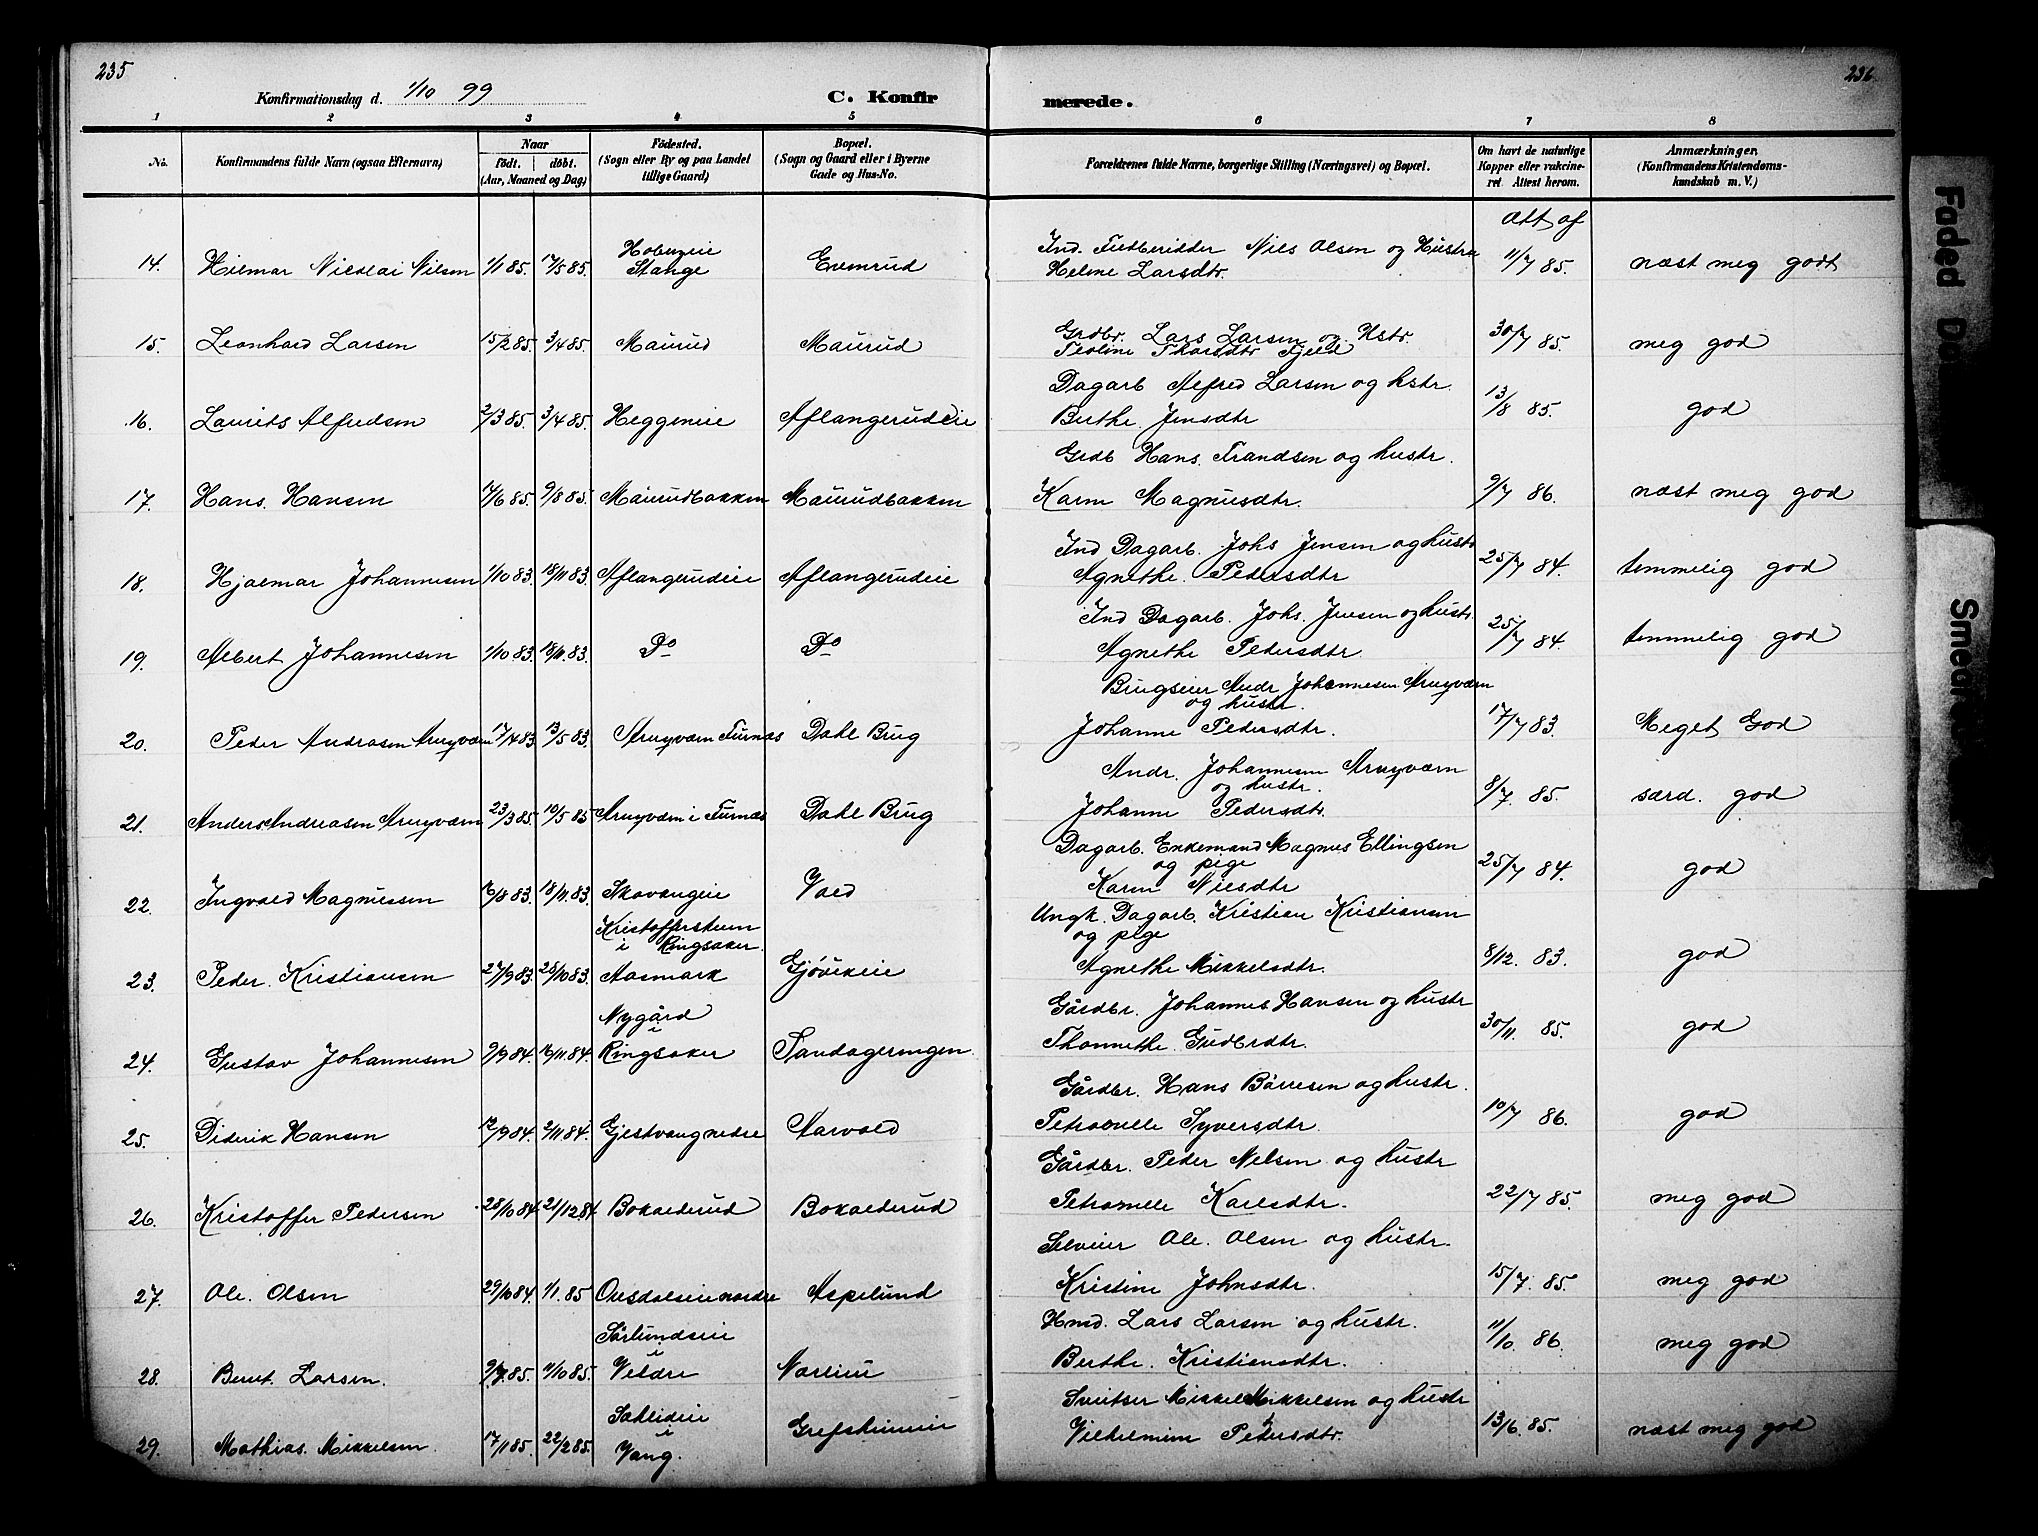 235
236
Konfirmationsdag d. 1/10 99
C. Konfirmerede.
1 2 3 4 5 6 7 8
No. Konfirmandens fulde Navn (ogsaa Efternavn) Naar født. døbt. (Aar, Maaned og Dag) Fødested. (Sogn eller By og paa Landet tillige Gaard) Bopæl. (Sogn og Gaard eller i Byerne Gade og Hus-No. Forældrenes fulde Navne, borgerlige Stilling (Næringsvei) og Bopæl. Om havt de naturlige Kopper eller vakcineret Attest herom. Anmærkninger. (Konfirmandens Kristendomskundskab m. V.)
Att af
14. Hilmar Nicolai Nilsen 1/1 85. 17/5 85. Stange Evenrud Niels Olsen og Hustru Helene Larsdtr. 11/7 85. næst meg godt
15. Leonhard Larsen 15/2 85. 3/4 85. Maurud Maurud Grdbr. Lars Larsen og Hstr. Teoline Thorsdtr 30/7 85. meg god
16. Laurits Alfredsen 2/3 85. 3/4 85. Heggeneie Aflangerudeie Dagarb Alfred Larsen og hstr. Berthe Jensdtr 13/8 85. god
17. Hans Hansen 17/6 85. 9/8 85. Maurudbakken Maurudbakken Grdb Hans Frandsen og hustr. Karen Magnusdtr. 9/7 86. næst meg god
18. Hjalmar Johannesen 1/10 83. 18/11 83. Aflangerudeie Aflangerudeie Ind Dagarb. Johs Jensen og hustr Agnethe Pedersdtr 25/7 84. temmelig god
19. Albert Johannesen 1/10 83. 18/11 83. Do Do Ind Dagarb. Johs. Jensen og hustr. Agnethe Pedersdtr. 25/7 84. temmelig god
20. Peder Andreasen Arnyvæen 17/4 83. 13/5 83. Arnyvæen Furnæs Dahl Brug Brugseier Andr Johannesen Arnyvæen og hustr. Johanne Pedersdtr. 17/7 83. Meget God
21. Anders Andreasen Arnyvæen 23/3 85. 10/5 85 Arnyvæen i Furnæs Dahl Brug Andr. Johannesen Arnyvæen og hustr. Johanne Pedersdtr. 8/7. 85. særd. god
22. Ingvald Magnussen 18/11 83. Skavangeie Vold Dagarb. Enkemand Magnus Ellingsen og pige Karen Nilsdtr 25/7 84. god
23. Peder Kristiansen 27/9 83. 28/10 83. i Ringsaker. Aasmark Gjøvikeie Ungk. Dagarb. Kristian Kristiansen og pige Agnethe Mikkelsdtr. 8/12. 83. god
24. Gustav Johannesen 9/9 84. 16/11 84. Nygård i Ringsaker Sandageringen Gårdbr. Johannes Hansen og hustr Thonnethe Gudbrdtr. 30/11. 85. god
25. Diderik Hansen 12/9 84. 2/11 84. Gjestvang nedre Aarvold Gårdbr. Hans Børresen og hustr. Petronelle Syversdtr. 10/7 86. god
26. Kristoffer Pedersen 28/10 84. 21/12 84. Bokalerud Bokalerud Gårdbr. Peder Nelsen og hustr Petronelle Karlsdtr. 22/7 85. meg god
27. Ole Olsen 29/10 84. 1/1. 85 nordre Aspelund Selveier Ole. Olsen og hustr. Kristine Johnsdtr. 15/7. 85. meg god
28. Bernt Larsen. 9/9 85. 11/10 85. Sørlundseie i Veldre Narlien Hmd. Lars Larsen og hustr. Berthe Kristiansdtr. 11/10. 86. meg god
29. Mathias Mikkelsen. 17/1 85. 22/2 85. i Vang. Grefsheimeie Sveitser Mikkel Mikkelsen og hustr Vilhelmine Pedersdtr. 13/6. 85. næst meg god
Faded D
Smear